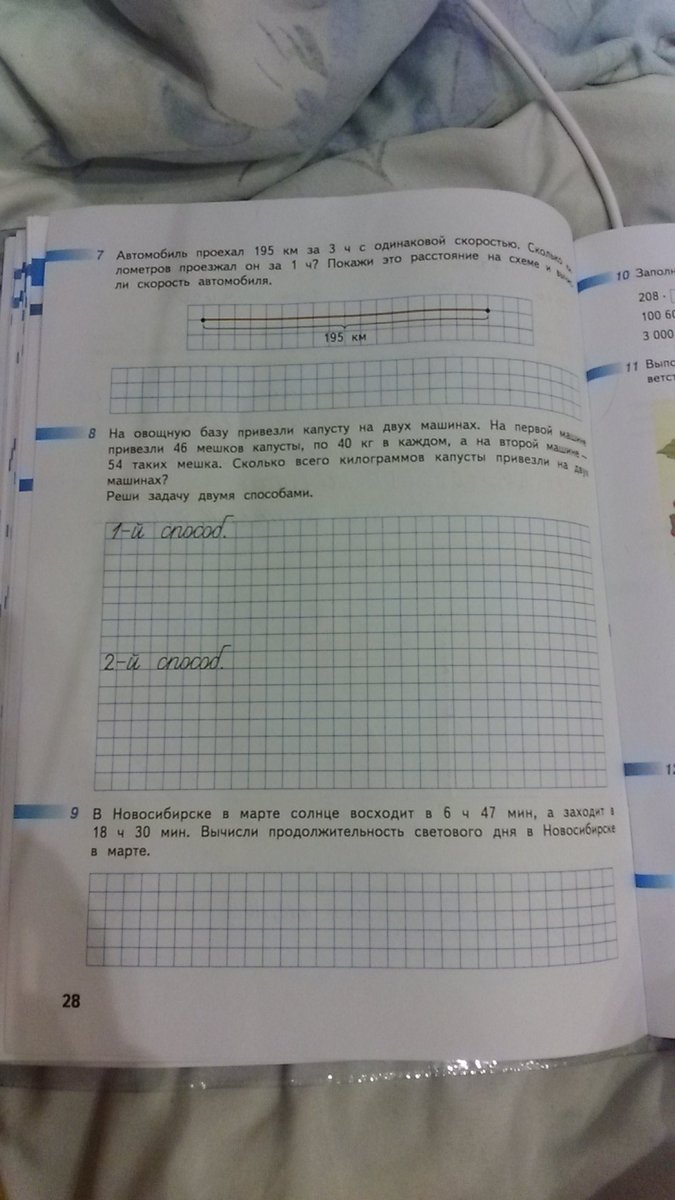 7 Автомобиль проехал 195 км за 3 ч с одинаковой скоростью. Сколько ки
лометров проезжал он за 1 ч? Покажи это расстояние на схеме и вычис
ли скорость автомобиля.
195 км
8 На овощную базу привезли капусту на двух машинах. На первой машине
привезли 46 мешков капусты, по 40 кг в каждом, а на второй машине –
54 таких мешка. Сколько всего килограммов капусты привезли на двух
машинах?
Реши задачу двумя способами.
1-й способ.
2-й способ.
9 В Новосибирске в марте солнце восходит в 6 ч 47 мин, а заходит в
18 ч 30 мин. Вычисли продолжительность светового дня в Новосибирске
в марте.
28
10 Заполн
208 ·
100 60
3 000
11 Выпо
ветст
12